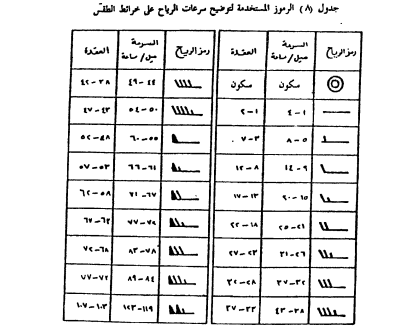 جدول (٨) الرموز المستخدمة لتوضيح سرعات الرياح على خرائط الطقس
رمز الرياح السرعة ميل/ساعة العقدة رمز الرياح السرعة ميل/ساعة العقدة
سكون سكون ٤٤-٤٩ ٣٨-٤٢
١-٤ ١-٢ ٥٠-٥٤ ٤٣-٤٧
٥-٨ ٣-٧ ٥٥-٦٠ ٤٨-٥٢
٩-١٤ ٨-١٢ ٦١-٦٦ ٥٣-٥٧
١٥-٢٠ ١٣-١٧ ٦٧-٧١ ٥٨-٦٢
٢١-٢٥ ١٨-٢٢ ٧٢-٧٧ ٦٣-٦٧
٢٦-٣١ ٢٣-٢٧ ٧٨-٨٣ ٦٨-٧٢
٣٢-٣٧ ٢٨-٣٢ ٨٤-٨٩ ٧٢-٧٧
٣٨-٤٣ ٣٣-٣٧ ١١٩-١٢٣ ١٠٣-١٠٧